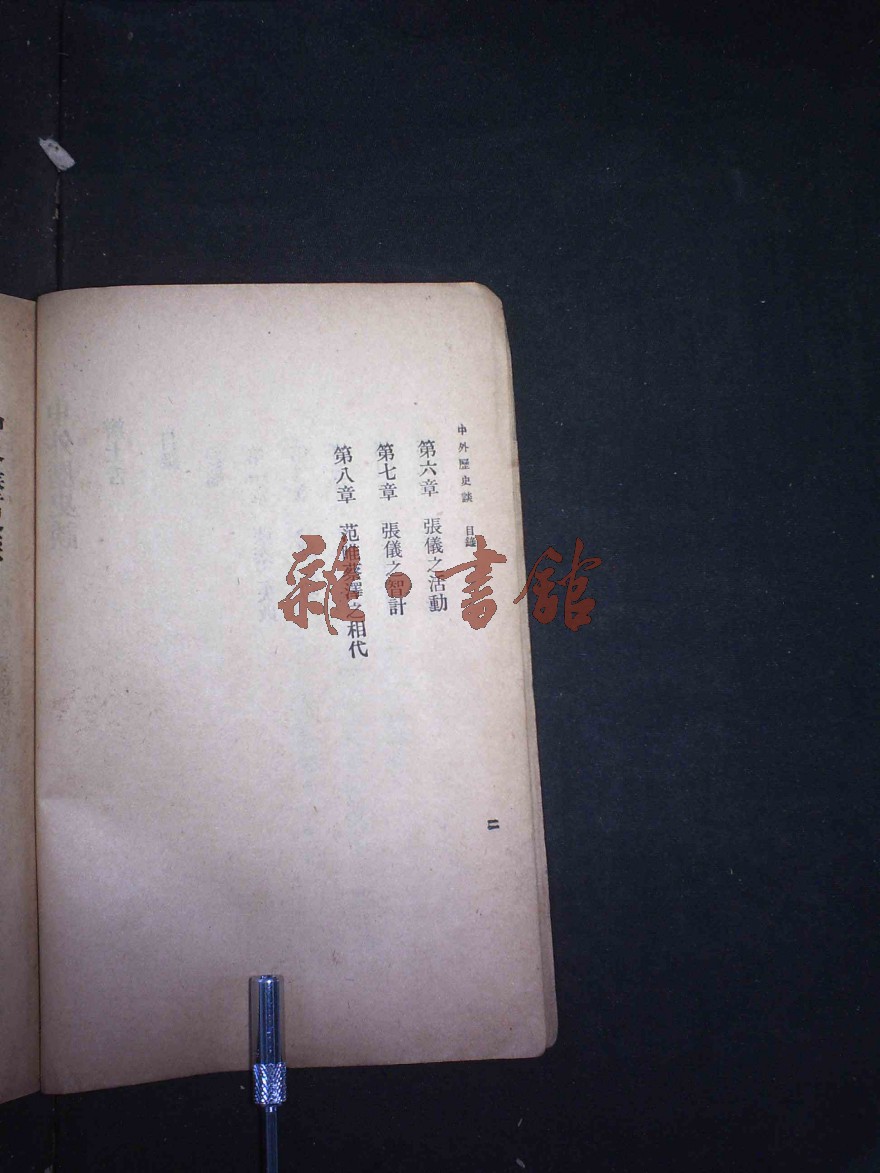 中外歷史談 目錄
第六章 張儀之活動
第七章 張儀之智計
第八章 范雎蔡澤之相代
二
雜·書館